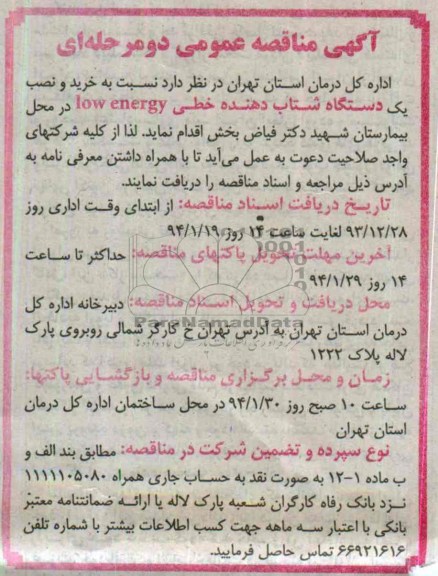 آگهی مناقصه عمومی دومرحله‌ای
اداره کل درمان استان تهران در نظر دارد نسبت به خرید و نصب
یک دستگاه شتاب دهنده خطی low energy در محل
بیمارستان شهید دکتر فیاض بخش اقدام نماید. لذا از کلیه شرکتهای
واجد صلاحیت دعوت به عمل می‌آید تا با همراه داشتن معرفی نامه به
آدرس ذیل مراجعه و اسناد مناقصه را دریافت نمایند.
تاریخ دریافت اسناد مناقصه: از ابتدای وقت اداری روز
۹۳/۱۲/۲۸ لغایت ساعت ۱۴ روز ۹۴/۱/۱۹
آخرین مهلت تحویل پاکتهای مناقصه: حداکثر تا ساعت
۱۴ روز ۹۴/۱/۲۹
محل دریافت و تحویل اسناد مناقصه: دبیرخانه اداره کل
درمان استان تهران به آدرس تهران خ کارگر شمالی روبروی پارک
لاله پلاک ۱۲۲۲
زمان و محل برگزاری مناقصه و بازگشایی پاکتها:
ساعت ۱۰ صبح روز ۹۴/۱/۳۰ در محل ساختمان اداره کل درمان
استان تهران
نوع سپرده و تضمین شرکت در مناقصه: مطابق بند الف و
ب ماده ۱-۱۲ به صورت نقد به حساب جاری همراه ۱۱۱۱۱۰۵۰۸۰
نزد بانک رفاه کارگران شعبه پارک لاله یا ارائه ضمانتنامه معتبر
بانکی با اعتبار سه ماهه جهت کسب اطلاعات بیشتر با شماره تلفن
۶۶۹۲۱۶۱۶ تماس حاصل فرمایید.
ParsNamadData